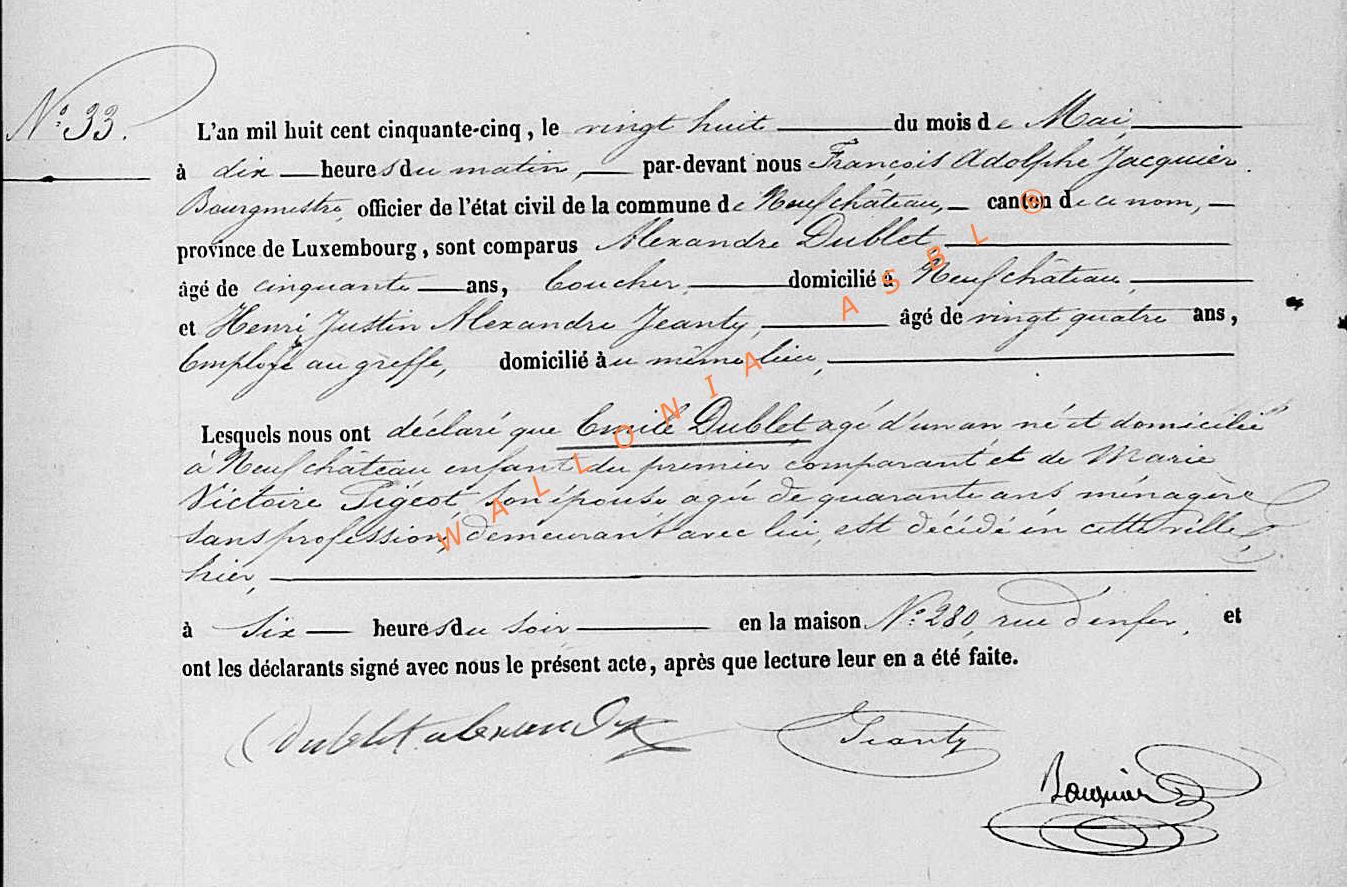 N.° 33.
L'an mil huit cent cinquante-cinq, le vingt huit du mois de Mai,
à dix heures du matin, par-devant nous François Adolphe Jacquier
Bourgmestre, officier de l'état civil de la commune de Neufchâteau, canton de ce nom,
province de Luxembourg, sont comparus Alexandre Dublet
âgé de cinquante ans, domicilié à Neufchâteau,
et Henri Justin Alexandre Jeanty, âgé de vingt quatre ans,
Employé au greffe, domicilié au même lieu,
Lesquels nous ont déclaré que Emile Dublet agé d'un an né et domicilié
à Neufchâteau enfant du premier comparant et de Marie
Victoire Pigeot son épouse agée de quarante ans ménagère
sans profession, demeurant avec lui, est décédé en cette ville,
hier,
à six heures du soir en la maison N.° 280, rue d'enfer, et
ont les déclarants signé avec nous le présent acte, après que lecture leur en a été faite.
Dublet alexandre Jeanty
Jacquier
WALLONIA ASBL ®